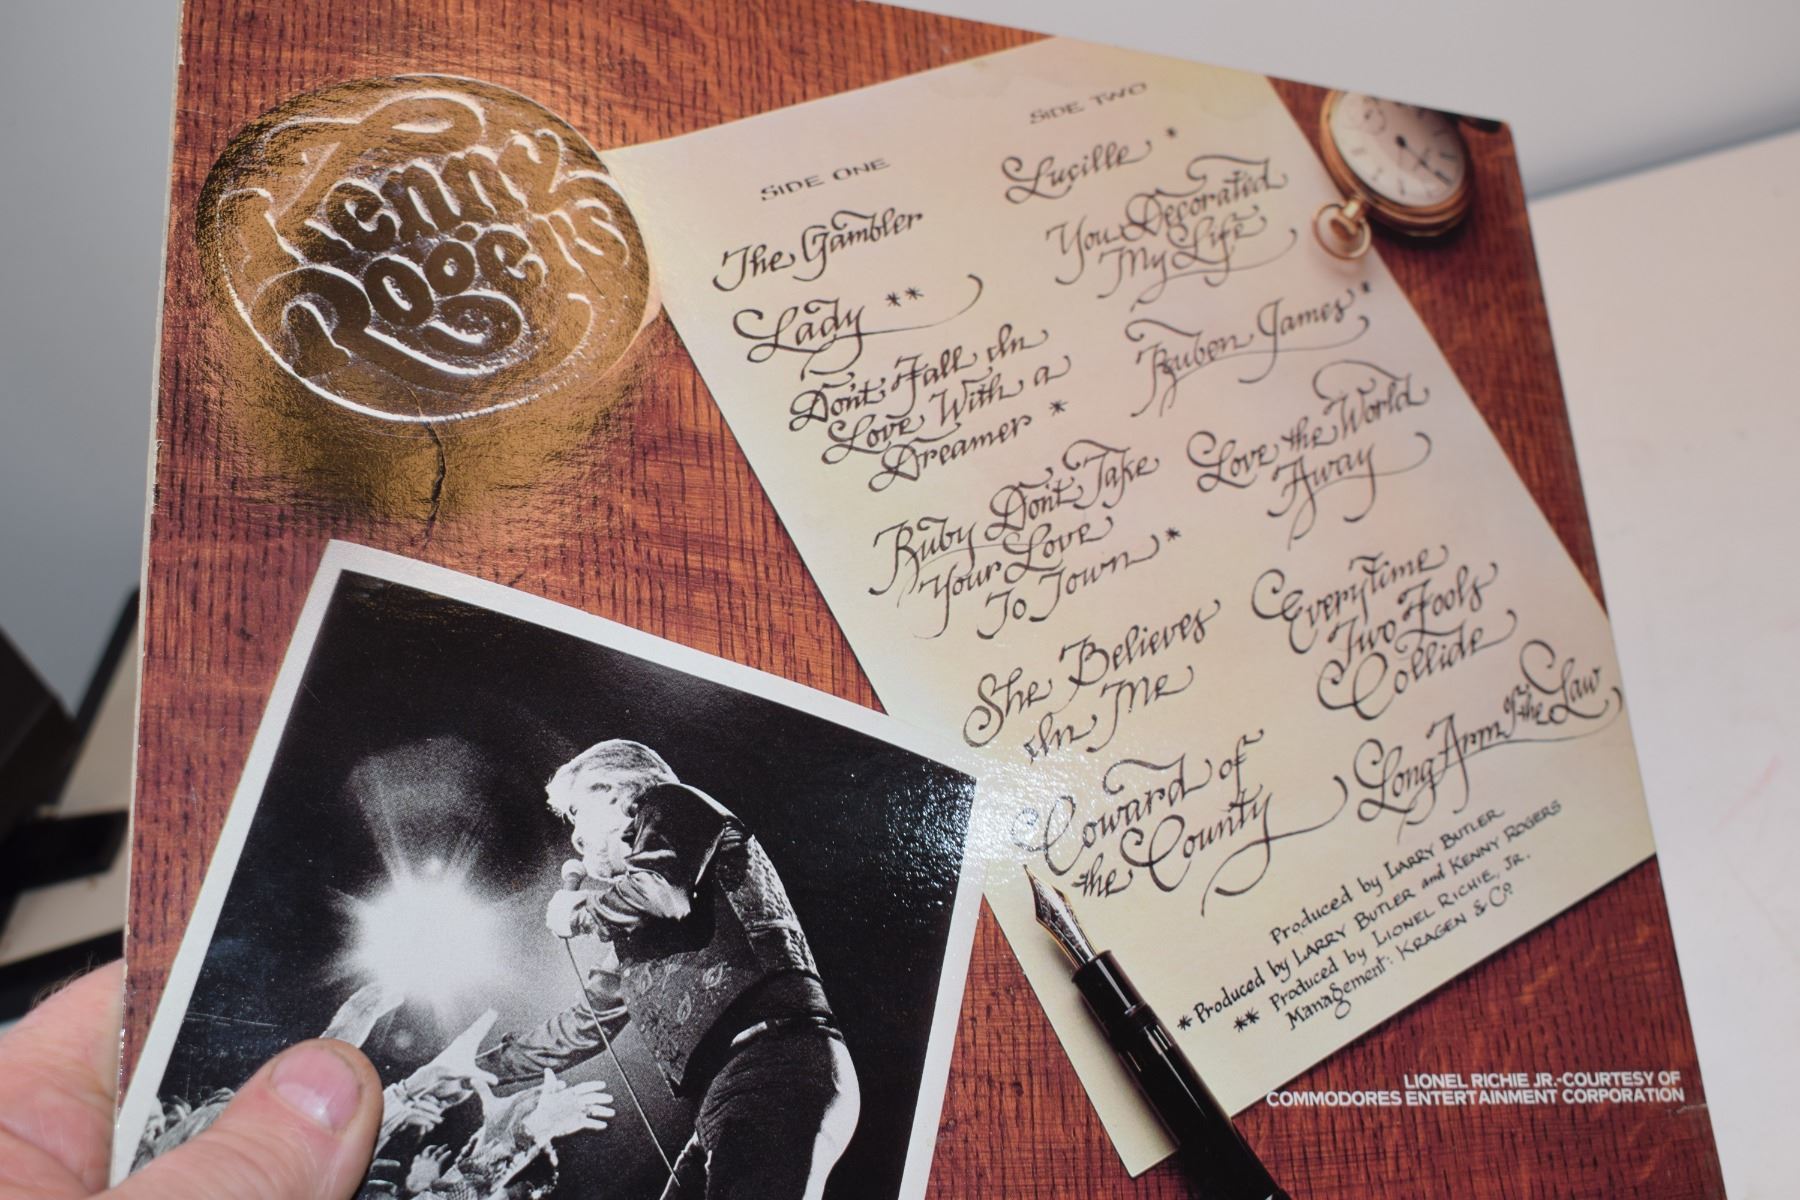 Kenny
Rogers
SIDE ONE
The Gambler
Lady **
Don't Fall In
Love With a
Dreamer *
Ruby Don't Take
Your Love
To Town *
She Believes
In Me
Coward of
the County
SIDE TWO
Lucille *
You Decorated
My Life
Reuben James *
Love the World
Away
Everytime
Two Fools
Collide
Long Arm of the Law
Produced by LARRY BUTLER
*Produced by LARRY BUTLER and KENNY ROGERS
** Produced by LIONEL RICHIE, JR.
Management: KRAGEN & Co.
LIONEL RICHIE JR.-COURTESY OF
COMMODORES ENTERTAINMENT CORPORATION